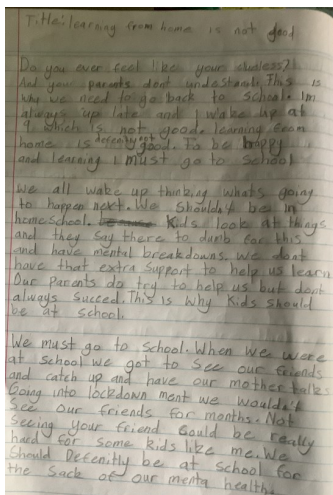 Title: learning from home is not good
Do you ever feel like your clueless?!
And your parents dont understand. This is
why we need to go back to school. Im
always up late and I wake up at
9 which is not good. learning from
home is defenitly not good. To be happy
and learning I must go to school
We all wake up thinking whats going
to happen next. We Shouldn't be in
homeschool. Kids look at things
and they say there to dumb for this
and have mental breakdowns. We dont
have that extra support to help us learn
Our parents do try to help us but dont
always Succed. This is why kids should
be at school.
We must go to school. When we were
at school we got to see our friends
and catch up and have our mother talks
Going into lockdown ment we wouldn't
see our friends for months. Not
seeing your friend could be really
hard for some kids like me. We
Should Defenitly be at school for
the Sack of our menta health.